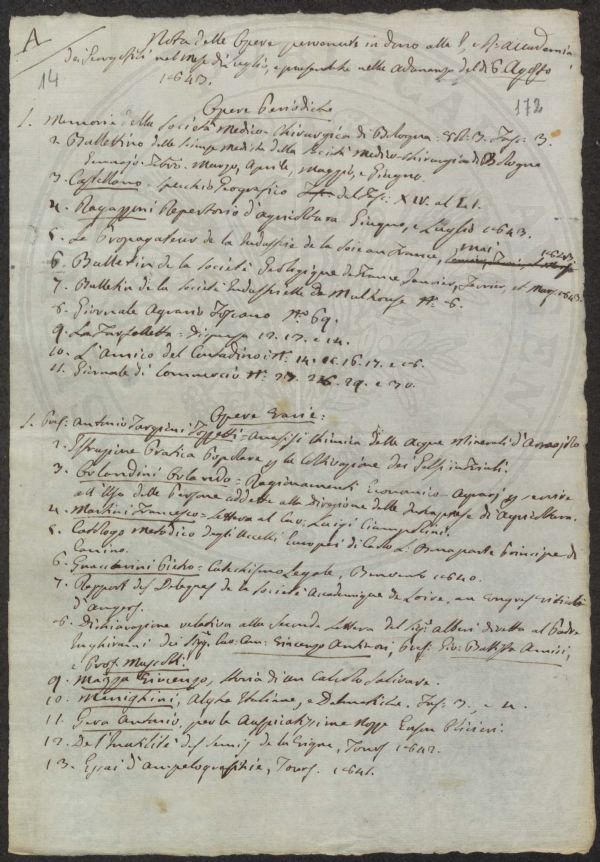 A
14
Nota delle Opere pervenute in dono alla I. e R. Accademia
dei Georgofili nel Mese di Luglio, e presentate nella Adunanza del dì 6. Agosto
1843.
172
Opere Periodiche
1. Memorie della Società Medico-Chirurgica di Bologna. Vol. 3. Fasc. 3.
2. Bullettino delle Scienze Mediche della Società Medico-Chirurgica di Bologna
Gennajo. Febbr. Marzo, Aprile, Maggio, e Giugno.
3. Castellano Specchio Geografico del Fasc. XLV. al LI.
4. Ragazzoni Repertorio d'agricoltura Giugno, e Luglio 1843.
5. Le Propagateur de l'Industrie de la Soie en France, mai 1843.
6. Bulletin de la Société Géologique de France Janvier, Fevrier, et Mars 1843.
7. Bulletin de la Société Industrielle de Mulhouse N.
8. Giornale Agrario Toscano N.o 69.
9. La Farfalletta = Dispensa 12. 13. e 14.
10. L'Amico del Contadino N. 14. 15. 16. 17. e 18.
11. Giornale di Commercio N. 27. 28. 29. e 30.
Opere Varie:
1. Prof. Antonio Targioni Tozzetti = Analisi Chimica delle Acque Minerali d'
2. Istruzione Pratica Popolare per la Coltivazione dei Gelsi
3. Orlandini Orlando = Ragionamenti Economico-Agrarj per servire
ad Uso delle Persone addette alla direzione delle Intraprese di Agricoltura.
4. Martini Francesco = Lettera al Cav. Luigi Ciampolini.
5. Catalogo Metodico degli Uccelli Europei di Carlo L. Bonaparte Principe di
Canino.
6. Pietro = Catechismo Legale, Benevento 1840.
7. Rapport des Délégués de la Société Académique de Loire, au Congrès
d'Angers.
8. Dichiarazione relativa alla Seconda Lettera del Sig. Alberi diretta al Padre
Inghirami dei Sigg. Cav. Vincenzo Antinori, Prof. Gio. Batista Amici,
e Prof. Mossotti.
9. Mazza Vincenzo, Storia di un Calcolo Salivare.
10. Meneghini, Alghe Italiane, e Dalmatiche, Fasc. 3. e 4.
11. Gera Antonio, per le Auspicatissime Nozze
12. De l'Inutilité des Semis de la Vigne, Tours 1842.
13. Essai d'ampelographie, Tours. 1841.